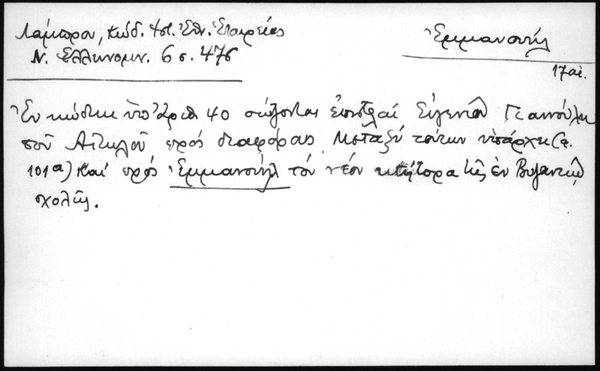 Λάμπρου, Κώδ. Ἱστ. Ἐθν. Ἑταιρείας
Ν. Ἑλληνομν. 6 σ. 476
Ἐμμανουήλ
17 αἰ.
Ἐν κώδικι ὑπ' ἀριθ 40 σώζονται ἐπιστολαί Εὐγενίου Γιαννούλη
τοῦ Αἰτωλοῦ πρός διαφόρους μεταξύ τούτων ὑπάρχει (σ.
101α) καί πρός Ἐμμανουήλ τόν νέον κτήτορα τῆς ἐν Βυζαντίῳ
σχολῆς.